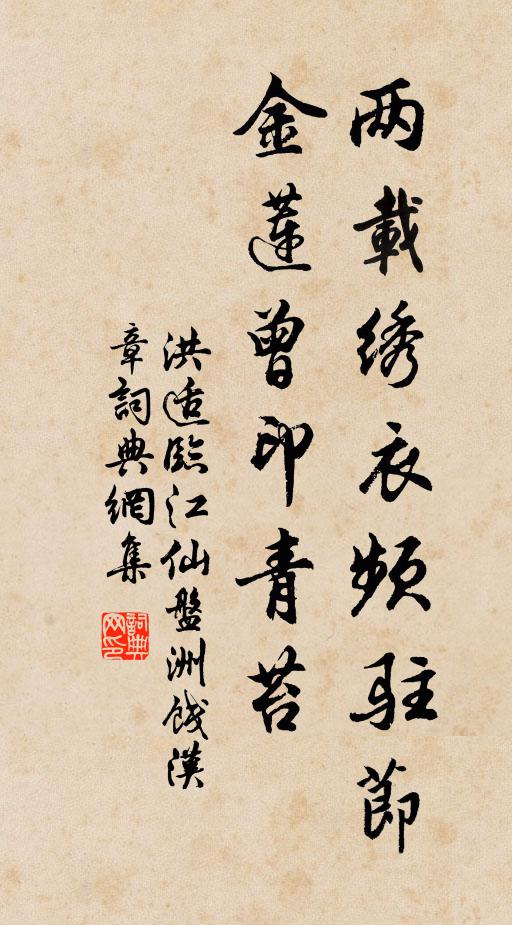 两載绣衣频駐節
金蓮曾印青苔
洪适臨江仙盤洲餞漢
章詞典網集
詞典网印